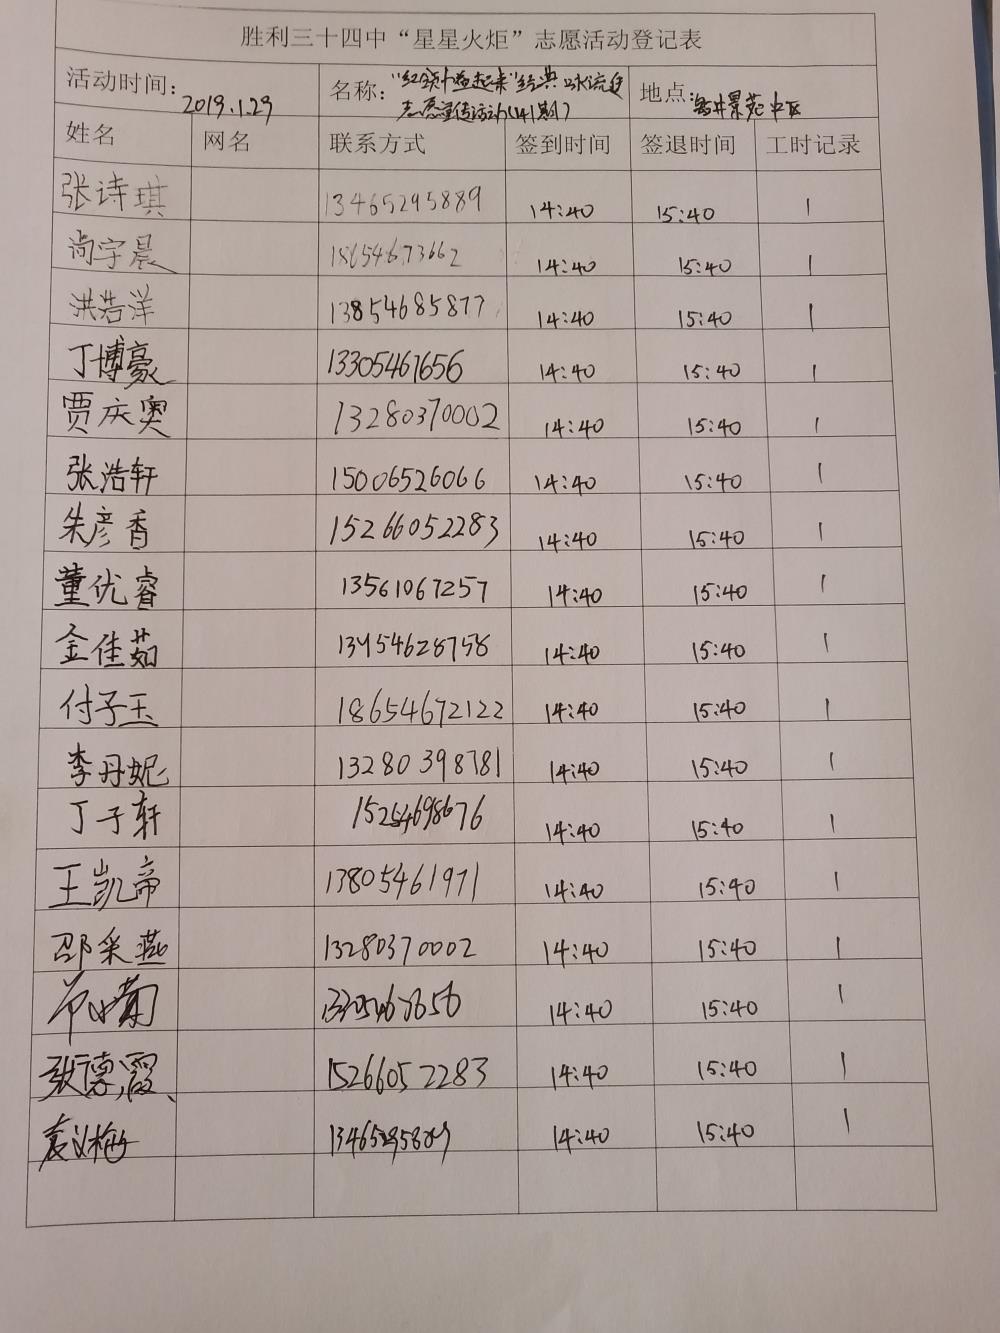 胜利三十四中“星星火炬”志愿活动登记表
活动时间：2019.1.29 名称：“红领巾益起来”经典咏流传志愿宣传活动（141期） 地点：海井景苑中区
姓名 网名 联系方式 签到时间 签退时间 工时记录
张诗琪 13465295889 14:40 15:40 1
尚宇晨 18654673662 14:40 15:40 1
洪浩洋 13854685877 14:40 15:40 1
丁博豪 13305467656 14:40 15:40 1
贾庆奥 13280370002 14:40 15:40 1
张浩轩 15006526066 14:40 15:40 1
朱彦香 15266052283 14:40 15:40 1
董优睿 13561067257 14:40 15:40 1
金佳茹 13954628758 14:40 15:40 1
付子玉 18654672122 14:40 15:40 1
李丹妮 13280398781 14:40 15:40 1
丁子轩 15254698676 14:40 15:40 1
王凯帝 13805461971 14:40 15:40 1
邵采燕 13280370002 14:40 15:40 1
13305467656 14:40 15:40 1
张德霞 15266052283 14:40 15:40 1
袁义梅 13465295889 14:40 15:40 1